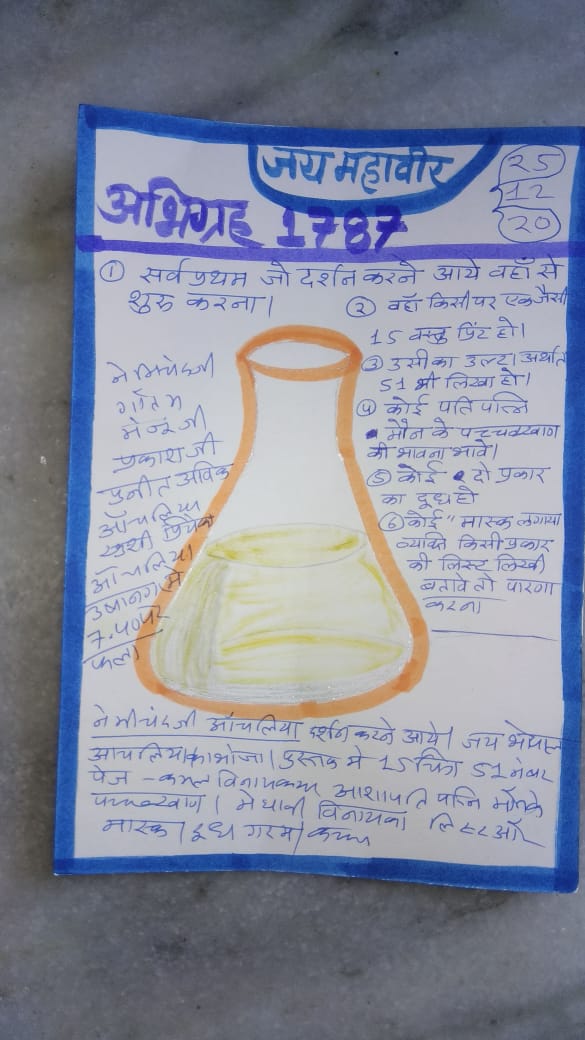 जय महावीर
25
12
20
अभिग्रह 1787
① सर्व प्रथम जो दर्शन करने आये वहाँ से
शुरु करना।
② वहाँ किसी पर एक जैसी
15 वस्तु प्रिंट हो।
③ उसी का उल्टा अर्थात
51 भी लिखा हो।
④ कोई पति पत्नि
मौन के पच्चक्खाण
की भावना भावे।
⑤ कोई दो प्रकार
का दूध हो
⑥ कोई " मास्क लगाया
व्यक्ति किसी प्रकार
की लिस्ट लिखी
बतावे तो पारणा
करना
गौतम
प्रकाश जी
पुनीत अविक
आँचलिया
खुशी
आँचलिया
7.40 पर
फला
नेमीचंद जी आँचलिया दर्शन करने आये। जय
आंचलिया का भांजा। पुस्तक मे 15 चित्र 51 नंबर
पेज - कमल विनायकया आशा पति पत्नि मौन के
पच्चक्खाण। मेघावी विनायका लिस्ट और
मास्क। दूध गरम।